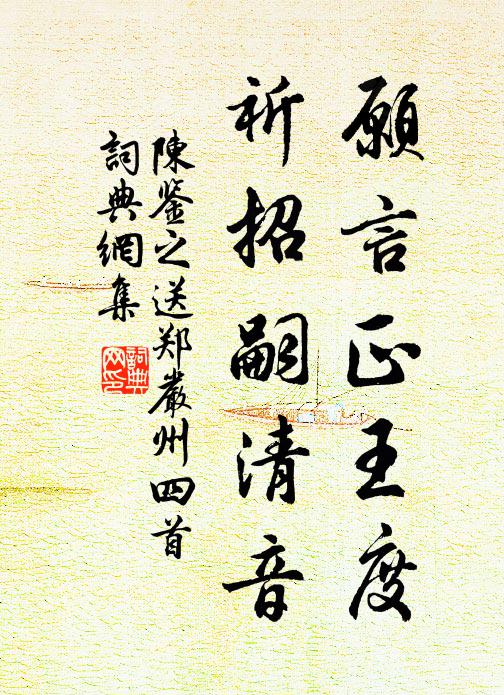 願言正王度
祈招嗣清音
陳鉴之送郑嚴州四首
詞典網集
詞典
网印